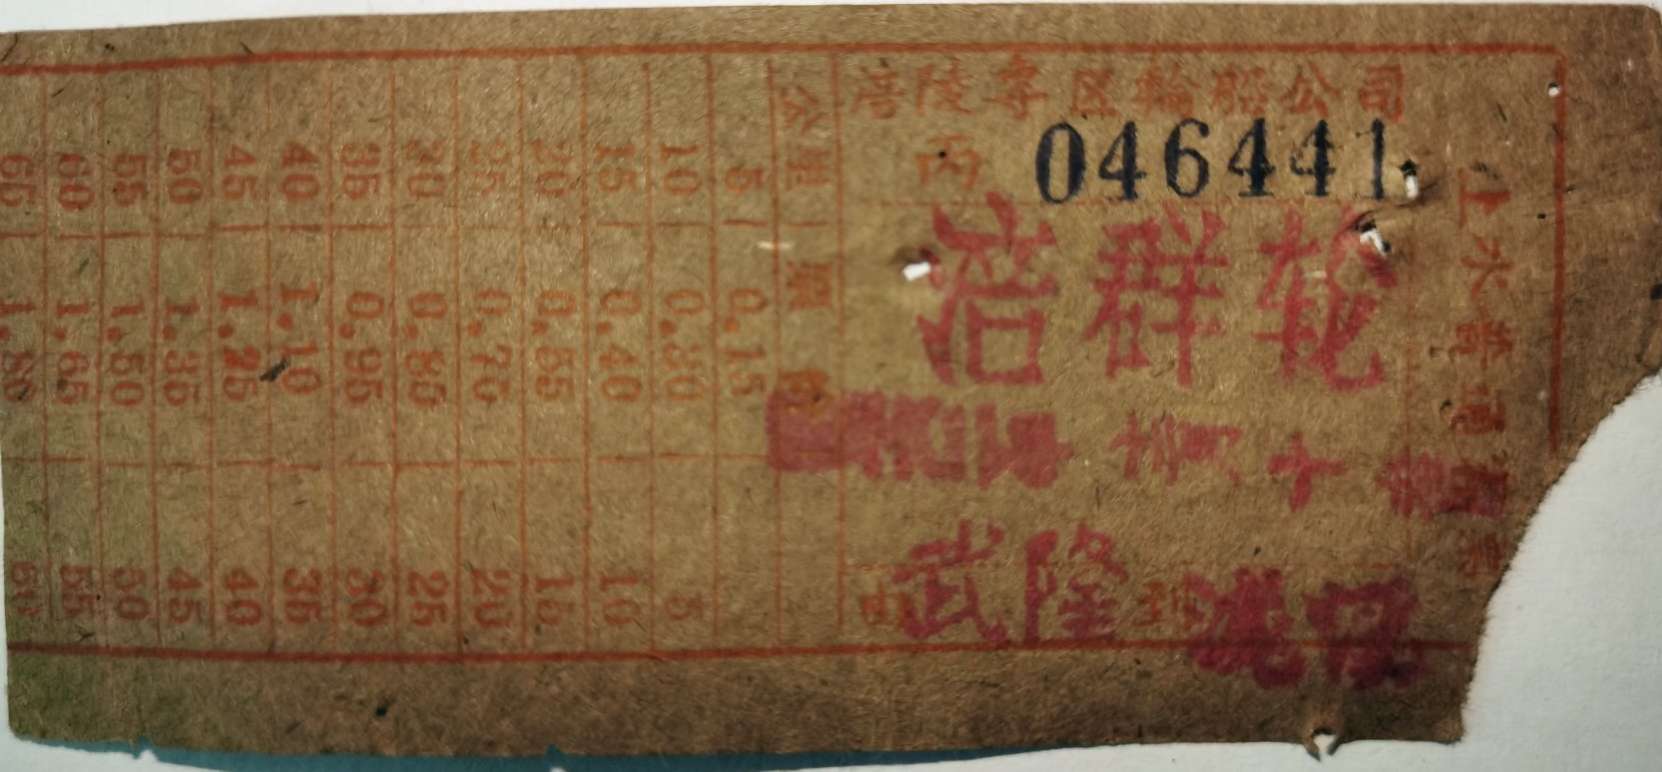 涪陵专区輪船公司
丙 046441
上水普通客票
涪群轮
由武隆到
公里 票
5 0.15
10 0.30 5
15 0.40 10
20 0.55 15
25 0.70 20
30 0.85 25
35 0.95 30
40 1.10 35
45 1.25 40
50 1.35 45
55 1.50 50
60 1.65 55
65 1.80 60